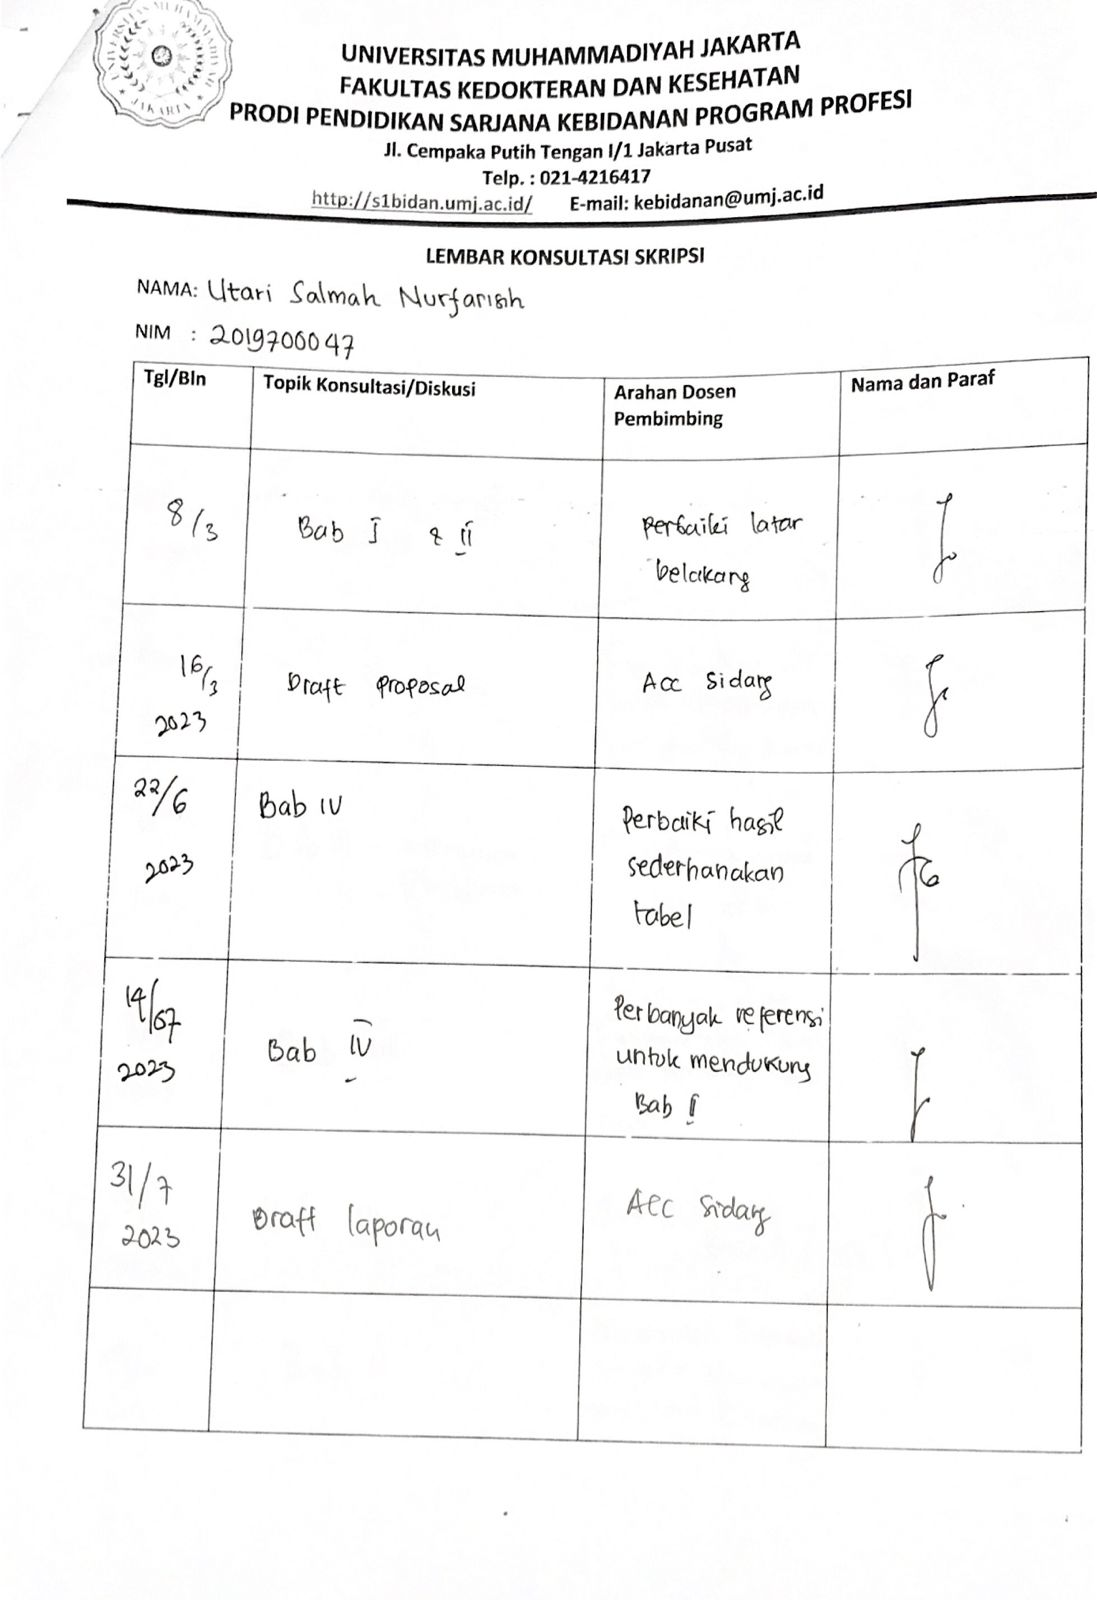 UNIVERSITAS MUHAMMADIYAH JAKARTA
FAKULTAS KEDOKTERAN DAN KESEHATAN
PRODI PENDIDIKAN SARJANA KEBIDANAN PROGRAM PROFESI
Jl. Cempaka Putih Tengan I/1 Jakarta Pusat
Telp. : 021-4216417
http://s1bidan.umj.ac.id/ E-mail: kebidanan@umj.ac.id
LEMBAR KONSULTASI SKRIPSI
NAMA: Utari Salmah
NIM : 2019700047
Tgl/Bln Topik Konsultasi/Diskusi Arahan Dosen Nama dan Paraf
Pembimbing
8/3 Bab I & II Perbaiki latar
belakang
16/3 Draft Proposal Acc Sidang
2023
22/6 Bab IV Perbaiki hasil
2023 sederhanakan
tabel
14/07 Bab IV Perbanyak referensi
2023 untuk mendukung
Bab
31/7 Draft laporan Acc Sidang
2023